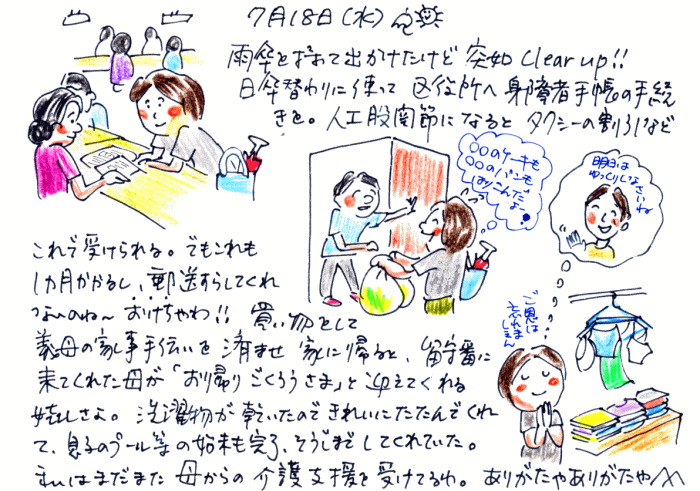 7月18日(水)
雨傘をずれて出かけたけど 突如 Clear up!!
日傘替わりに使って 区役所へ 身障者手帳の手続
きを。人工股関節になると タクシーの割引など
これで受けられる。でもこれも
1カ月かかるし、郵送すらしてくれ
ないのね〜 おけちゃわ!! 買い物をして
義母の家事手伝いを済ませ 家に帰ると、留守番に
来てくれた母が「お帰り ごくろうさま」と迎えてくれる
嬉しさよ。洗濯物が乾いたのできれいにたたんでくれ
て、息子のプール等の始末も完了、そうじまでしてくれていた。
まだまだ 母からの介護支援を受けてるわ。ありがたやありがたや
〇〇のケーキも
〇〇のパンも
はりこんだ
よー
明日は
ゆっくりしなさいね
ご恩は
忘れま
せん